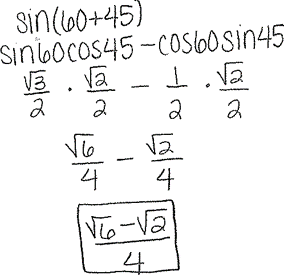 sin(60+45)
sin60cos45 - cos60sin45
√3/2 · √2/2 - 1/2 · √2/2
√6/4 - √2/4
√6-√2/4